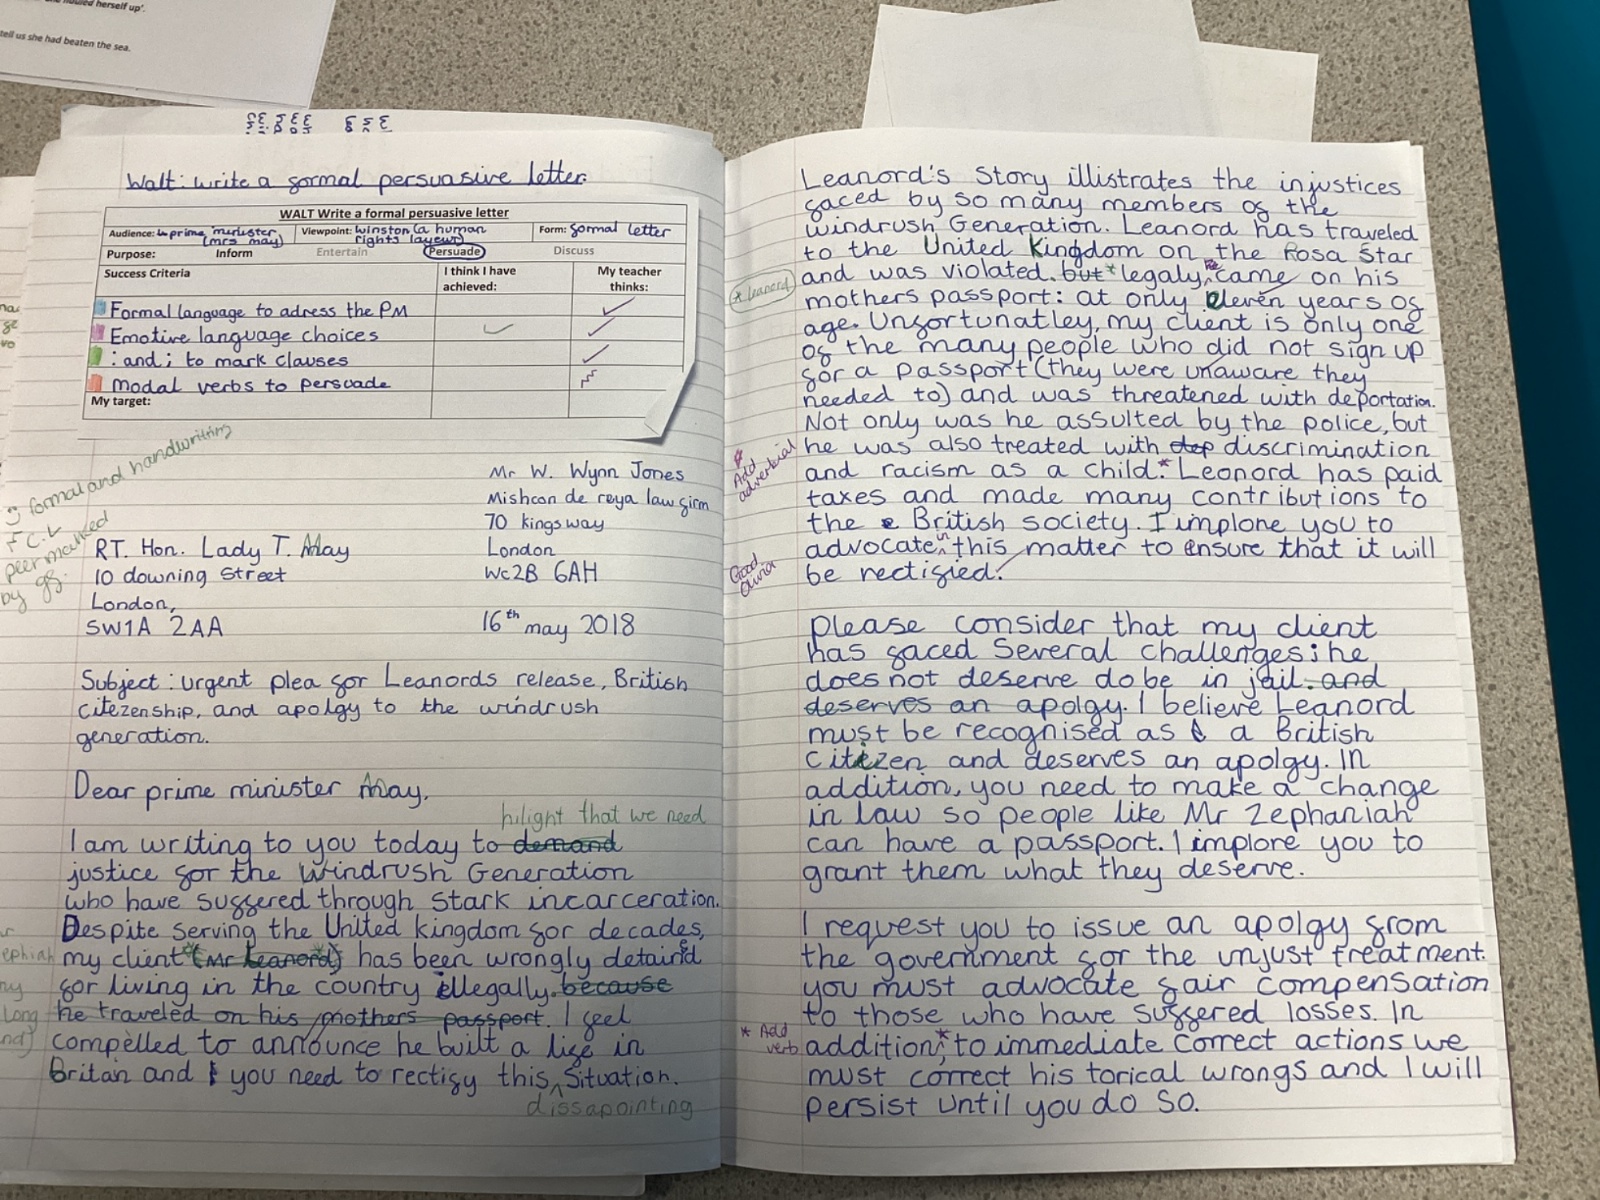 hauled herself up'.
tell us she had beaten the sea.
Walt: write a formal persuasive letter.
WALT Write a formal persuasive letter
Audience: prime minister (mrs may)
Viewpoint: Winston (a human rights layeur)
Form: formal letter
Purpose: Inform Entertain Persuade Discuss
Success Criteria
I think I have achieved:
My teacher thinks:
Formal language to adress the PM
Emotive language choices
: and ; to mark clauses
Modal verbs to persuade
My target:
formal and handwriting
peer marked
by
Mr W. Wynn Jones
Mishcon de reya law firm
70 kingsway
London
WC2B 6AH
16th may 2018
RT. Hon. Lady T. May
10 downing Street
London,
SW1A 2AA
Subject: urgent plea for Leanords release, British
citezenship, and apolgy to the windrush
generation.
Dear prime minister May,
hilight that we need
I am writing to you today to demand
justice for the Windrush Generation
who have suffered through stark incarceration.
Despite serving the United kingdom for decades,
my client *(Mr Leanord)* has been wrongly detained
for living in the country illegally. because
he traveled on his mothers passport. I feel
compelled to announce he built a life in
Britan and I you need to rectify this ^ situation.
dissapointing
Leanord's Story illistrates the injustices
faced by so many members of the
windrush Generation. Leanord has traveled
to the United Kingdom on the Rosa Star
and was violated. but * legaly he came on his
* leanord
mothers passport: at only eleven years of
age. Unfortunatley, my client is only one
of the many people who did not sign up
for a passport (they were unaware they
needed to) and was threatened with deportation.
Not only was he assulted by the police, but
he was also treated with dep discrimination
* Add adverbial
and racism as a child.* Leonord has paid
taxes and made many contributions to
the e British society. I implore you to
advocate in this matter to ensure that it will
Good Olivia
be rectified.
please consider that my client
has faced several challenges; he
does not deserve do be in jail. and
deserves an apolgy. I believe Leanord
must be recognised as a British
citizen and deserves an apolgy. In
addition, you need to make a change
in law so people like Mr Zephaniah
can have a passport. I implore you to
grant them what they deserve.
I request you to issue an apolgy from
the government for the unjust treatment.
you must advocate fair compensation
to those who have suffered losses. In
* Add verb
addition,* to immediate correct actions we
must correct his torical wrongs and I will
persist until you do so.